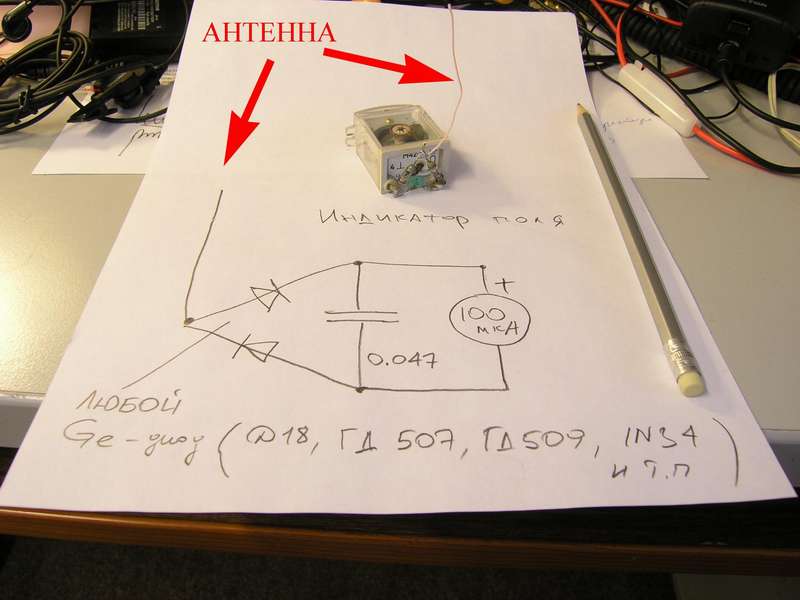 АНТЕННА
Индикатор поля
+
100
мкА
0.047
ЛЮБОЙ
Ge-диод (Д18, ГД 507, ГД509, 1N34
и т.п)